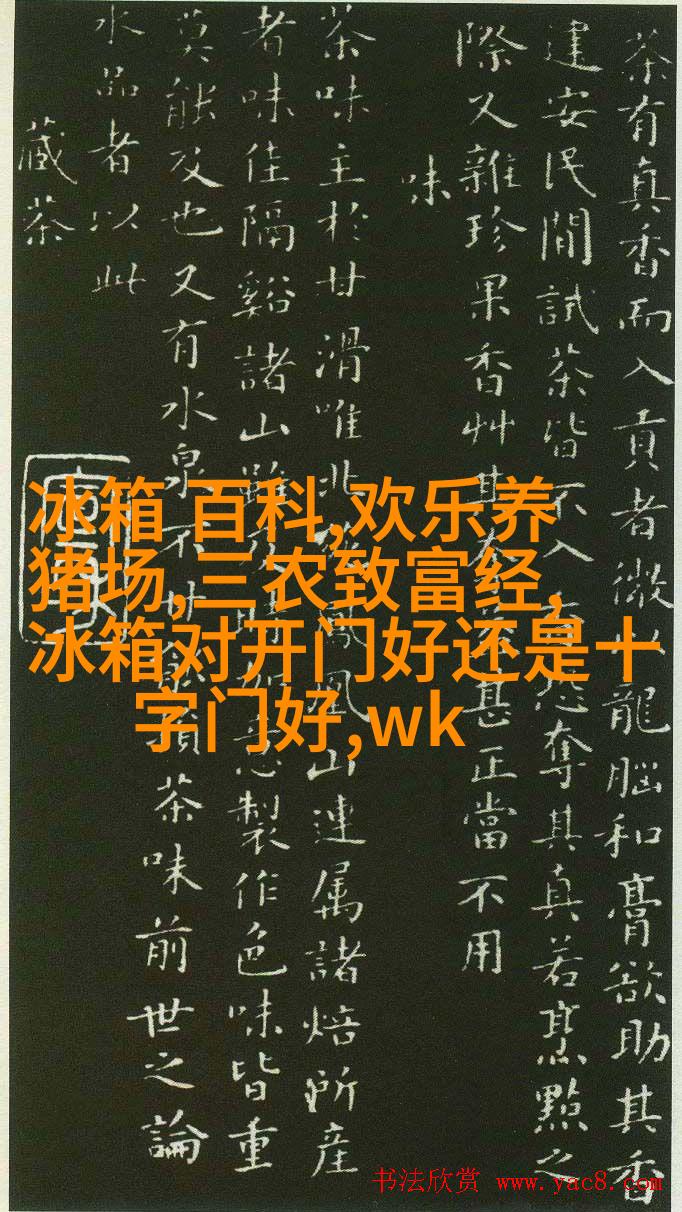 茶有真香而入貢者微以龍腦和膏欲助其香
建安民間試茶皆不入香恐奪其真若烹點之
際又雜珍果香艸其奪益甚正當不用
味
茶味主於甘滑唯北苑鳳凰山連属諸焙所産
者味佳隔谿諸山雖及時加意製作色味皆重
莫能及也又有水泉不甘能損茶味前世之論
水品者以此
藏茶
冰箱 百科,欢乐养
猪场,三农致富经,
冰箱对开门好还是十
字门好,wk
书法欣赏 www.yac8.com